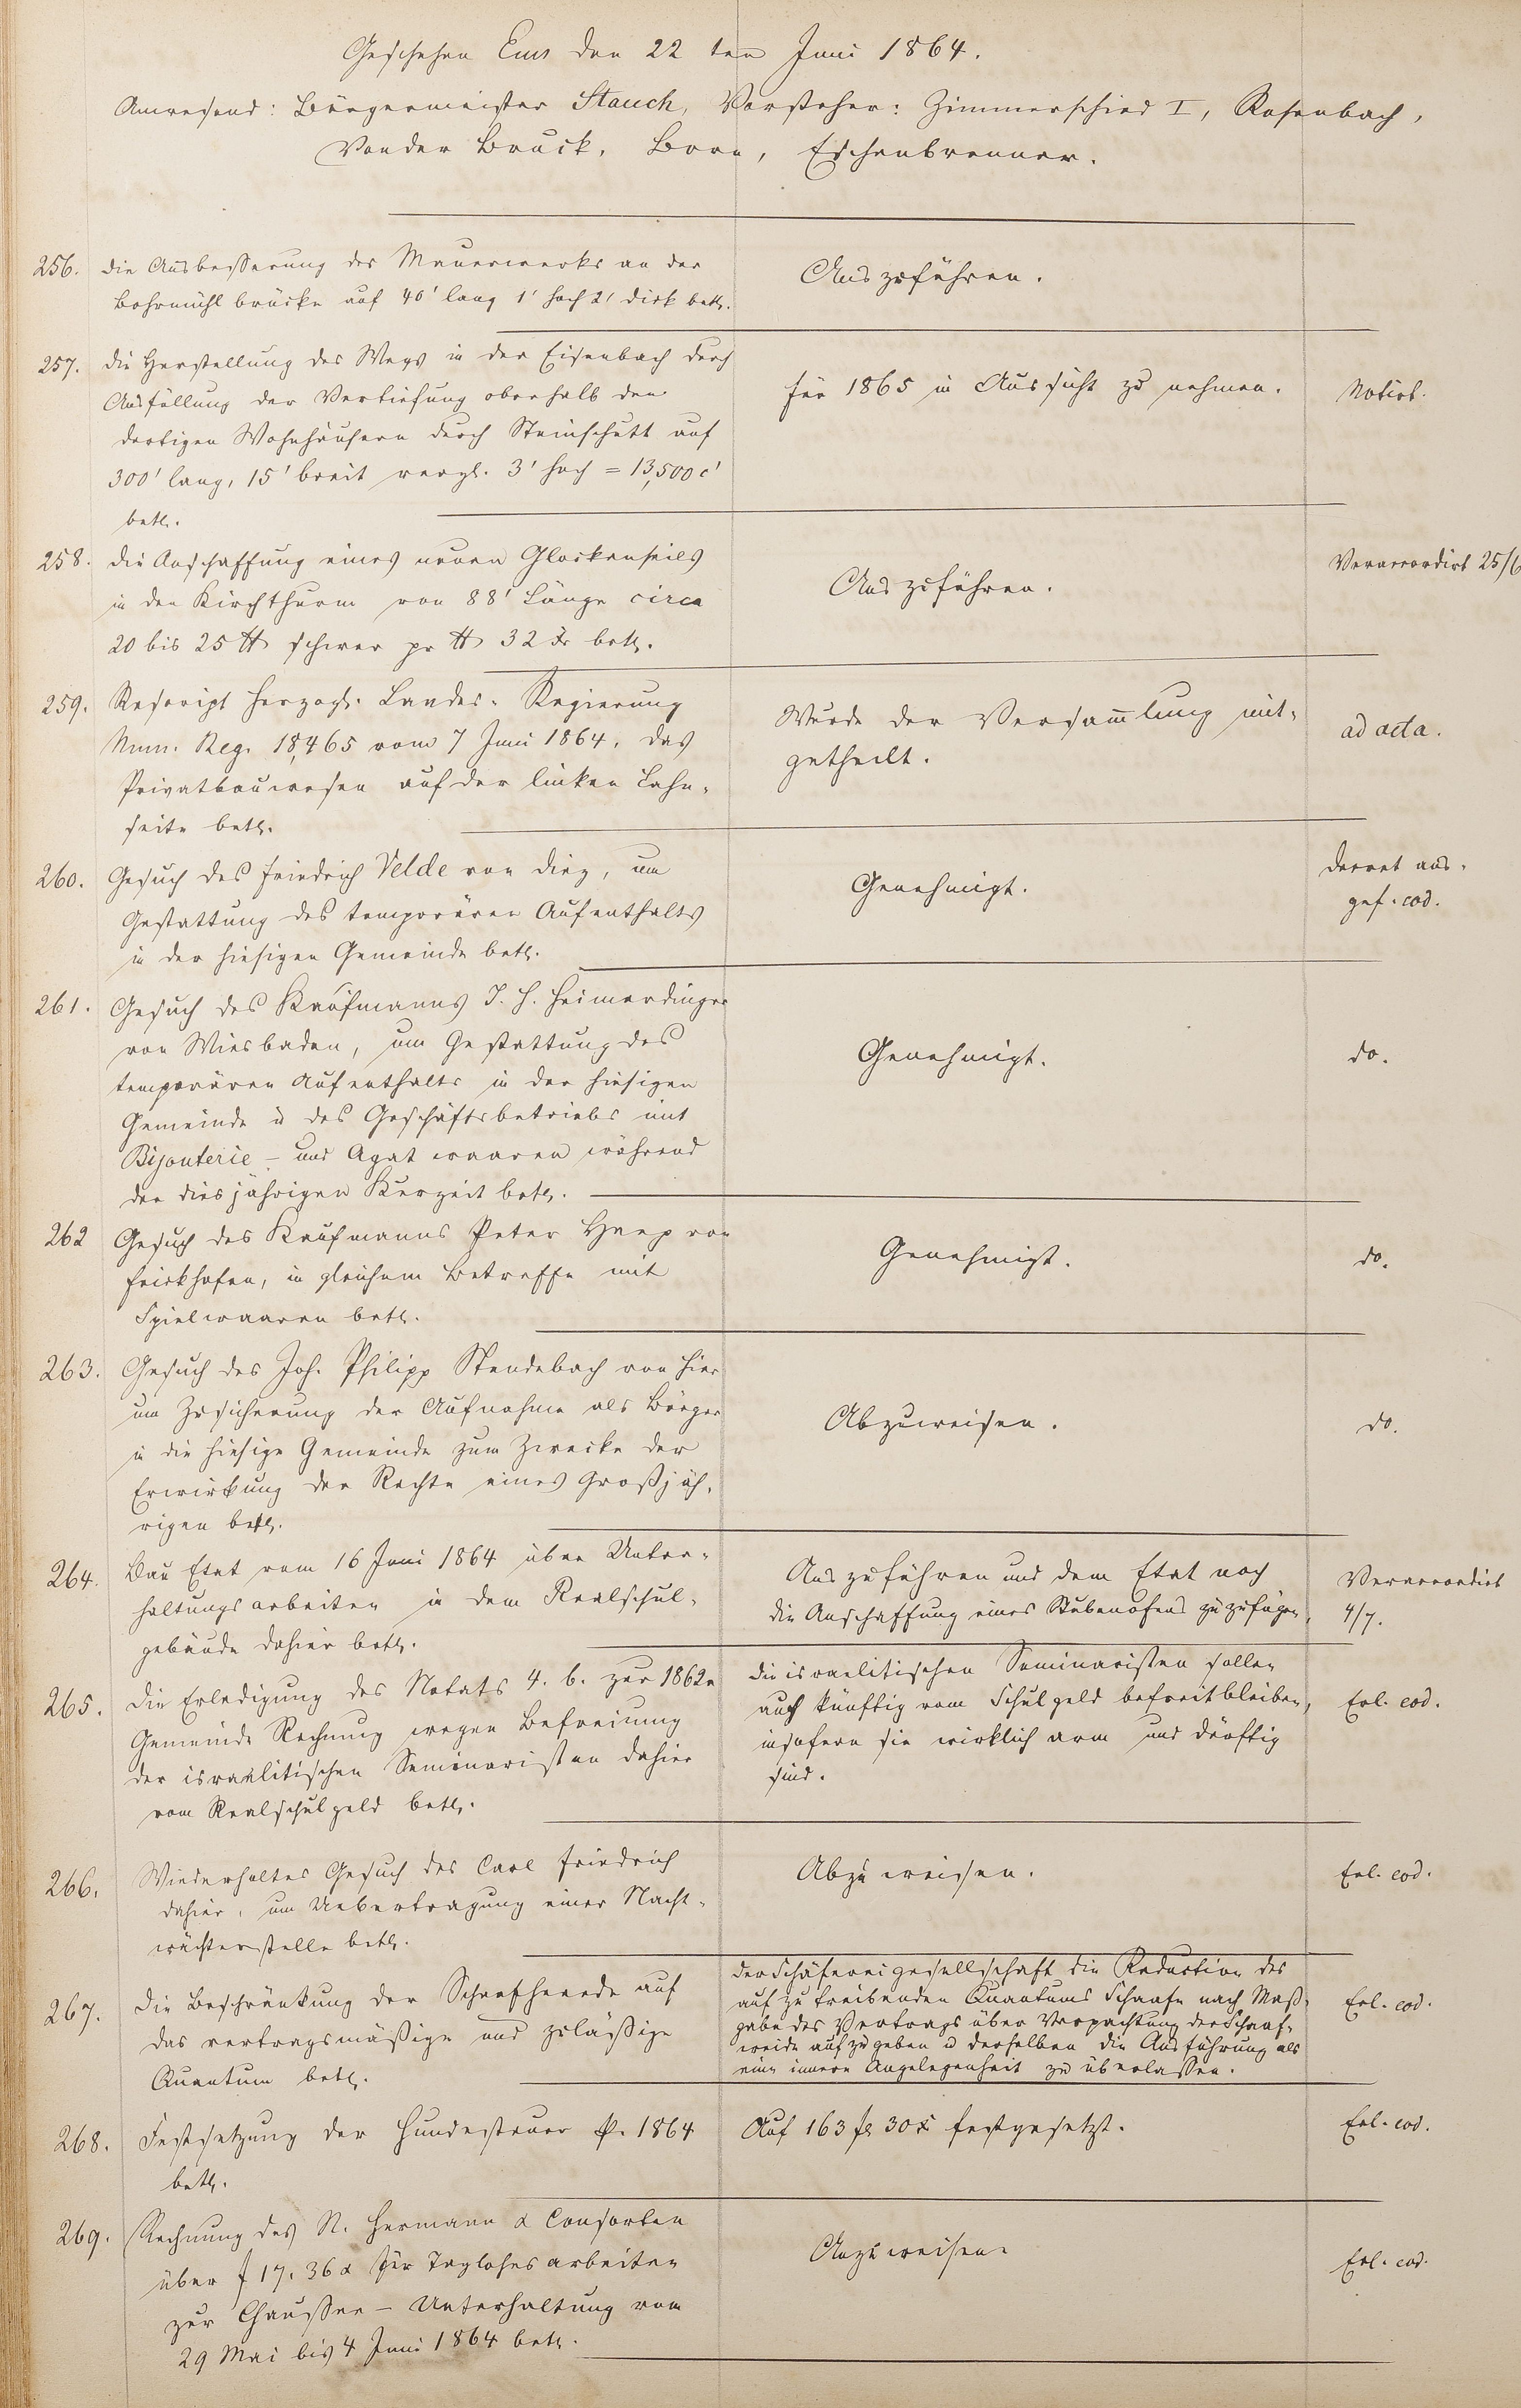 Geschehen Ems den 22 ten Juni 1864.
Anwesend: Bürgermeister Stauch, Vorsteher: Zimmerschied I, Rosenbach,
Vonder Bruck, Born, Eschenbrenner.
256. die Ausbesserung des Mauerwerks an der
Bohrmühl brücke auf 40' lang 1' hoch 2' dick betr.
Auszuführen.
257. die Herstellung des Wegs in der Eisenbach durch
Ausfüllung der Vertiefung oberhalb den
dortigen Wohnhäusern durch Steinschutt auf
300' lang, 15' breit vergl. 3' hoch = 13,500 c'
betr.
für 1865 in Aussicht zu nehmen.
Notirt.
258. die Anschaffung eines neuen Glockenseils
in den Kirchthurm von 88' Länge circa
20 bis 25 ℔ schwer pr ℔ 32 xr betr.
Auszuführen.
Veraccordirt 25/6
259. Rescript Herzogl. Landes-Regierung
Num. Reg. 18,465 vom 7 Juni 1864, das
Privatbauwesen auf der linken Lahn-
seite betr.
Wurde der Versam̅lung mit-
getheilt.
ad acta.
260. Gesuch des Friedrich Velde von Diez, um
Gestattung des temporären Aufenthalts
in der hiesigen Gemeinde betr.
Genehmigt.
Decret aus-
gef. eod.
261. Gesuch des Kaufmanns J. H. Heimerdinger
von Wiesbaden, um Gestattung des
temporären Aufenthalts in der hiesigen
Gemeinde u des Geschäftsbetriebs mit
Bijouterie - und Agat waaren während
der diesjährigen Kurzeit betr.
Genehmigt.
do.
262 Gesuch des Kaufmanns Peter Heep von
Frickhofen, in gleichem Betreffe mit
Spielwaaren betr.
Genehmigt.
do.
263. Gesuch des Joh. Philipp Stendebach von hier
um Zusicherung der Aufnahme als Bürger
in die hiesige Gemeinde zum Zwecke der
Erwirkung der Rechte eines Großjäh-
rigen betr.
Abzuweisen.
do.
264. Bau Etat vom 16 Juni 1864 über Unter-
haltungsarbeiten in dem Realschul-
gebäude dahier betr.
Auszuführen und dem Etat noch
die Anschaffung eines Stubenofens zuzufügen.
Veraccordirt
4/7.
265. die Erledigung des Notats 4. b. zur 1862r
Gemeinde Rechnung wegen Befreiung
der israelitischen Seminaristen dahier
vom Realschulgeld betr.
die israelitischen Seminaristen sollen
auch künftig vom Schulgeld befreit bleiben,
insofern sie wirklich arm und dürftig
sind.
Erl. eod.
266. Wiederholtes Gesuch des Carl Friedrich
dahier, um Uebertragung einer Nacht-
wächterstelle betr.
Abzuweisen.
Erl. eod.
267. die Beschränkung der Schaafheerde auf
das vertragsmäßige und zuläßige
Quantum betr.
der Schäfereigesellschaft die Reduction des
aufzutreibenden Quantums Schaafe nach Maß-
gabe des Vertrags über Verpachtung der Schaaf-
weide aufzugeben u derselben die Ausführung als
eine innere Angelegenheit zu überlassen.
Erl. eod.
268. Festsetzung der Hundesteuer p. 1864
betr.
Auf 163 fl 30 x festgesetzt.
Erl. eod.
269. Rechnung des N. Hermann & Consorten
über f 17. 36 x für Taglohnsarbeiten
zur Chaussee - Unterhaltung vom
29 Mai bis 4 Juni 1864 betr.
Anzuweisen
Erl. eod.